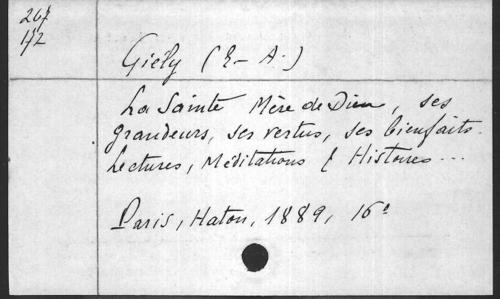 267
172
Giély (E-A.)
La Sainte Mère de Dieu, ses
grandeurs, ses vertus, ses bienfaits.
Lectures, Méditations & Histoires...
Paris, Haton, 1889, 16°